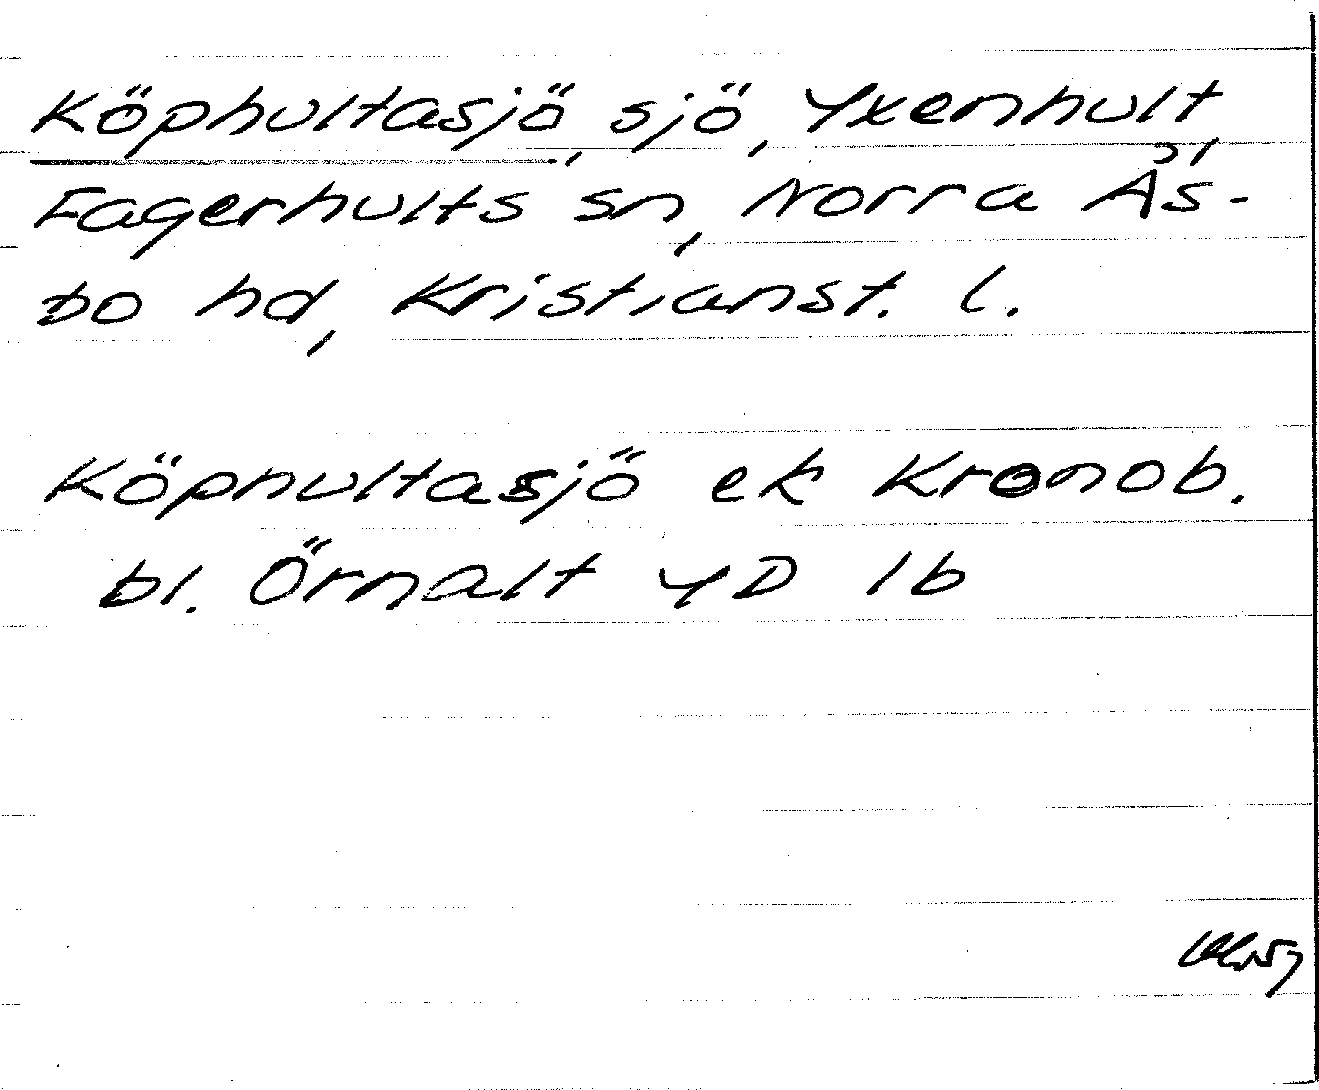 Köphultasjö, sjö, Yxenhult,
Fagerhults sn, Norra Ås-
bo hd, Kristianst. l.
Köphultasjö ek Kronob.
bl. Örnalt YD 1b